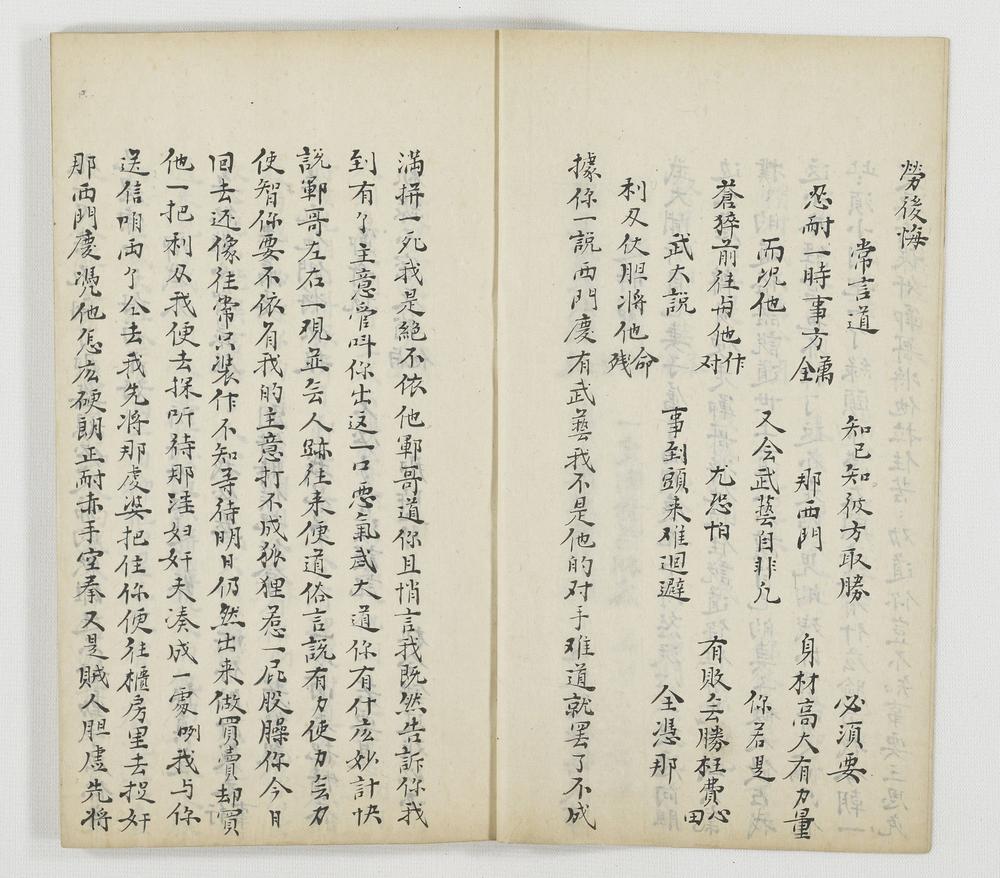 勞後悔
常言道　知己知彼方取勝　必須要
忍耐一時事方萬全　那西門　身材高大有力量
而况他　又会武藝自非凡　你若是
蒼猝前往与他作对　尤恐怕　有敗無勝枉費心田
武大說　事到頭来难迴避　全憑那
利刃仗胆将他命残
據你一説西門慶有武藝我不是他的对手难道就罢了不成
满拼一死我是絕不依他鄆哥道你且悄言我既然告訴你我
到有了主意管叫你出这一口恶氣武大道你有什庅妙計快
説鄆哥左右一覌並無人跡往来便道俗言説有力使力無力
使智你要不依有我的主意打不成狐狸惹一屁股臊你今日
回去还像往常只装作不知等待明日仍然出来做買賣却買
他一把利刃我便去探听待那淫妇奸夫凑成一處咧我与你
送信咱両个仝去我先将那虔婆把住你便往櫃房里去捉奸
那西門慶凴他怎庅硬朗正耐赤手空拳又是賊人胆虚先将